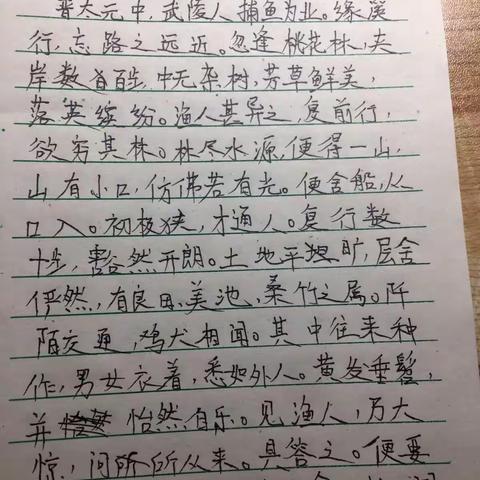 晋太元中,武陵人捕鱼为业。缘溪
行,忘路之远近。忽逢桃花林,夹
岸数百步,中无杂树,芳草鲜美,
落英缤纷。渔人甚异之,复前行,
欲穷其林。林尽水源,便得一山,
山有小口,仿佛若有光。便舍船,从
口入。初极狭,才通人。复行数
十步,豁然开朗。土地平坦旷,屋舍
俨然,有良田、美池,桑竹之属。阡
陌交通,鸡犬相闻。其中往来种
作,男女衣着,悉如外人。黄发垂髫,
并怡然自乐。见渔人,乃大
惊,问所所从来。具答之。便要